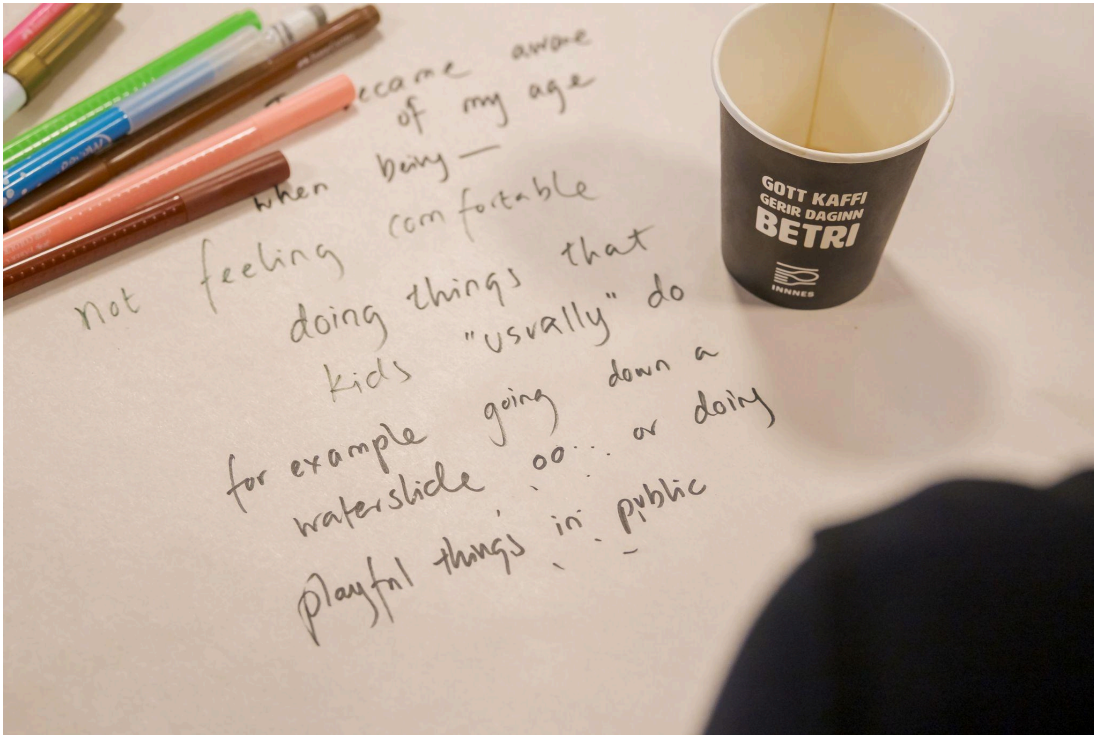 became aware
of my age
when being —
not feeling comfortable
doing things that
kids "usually" do
for example going down a
waterslide or doing
playful things in public
GOTT KAFFI
GERIR DAGINN
BETRI
INNNES